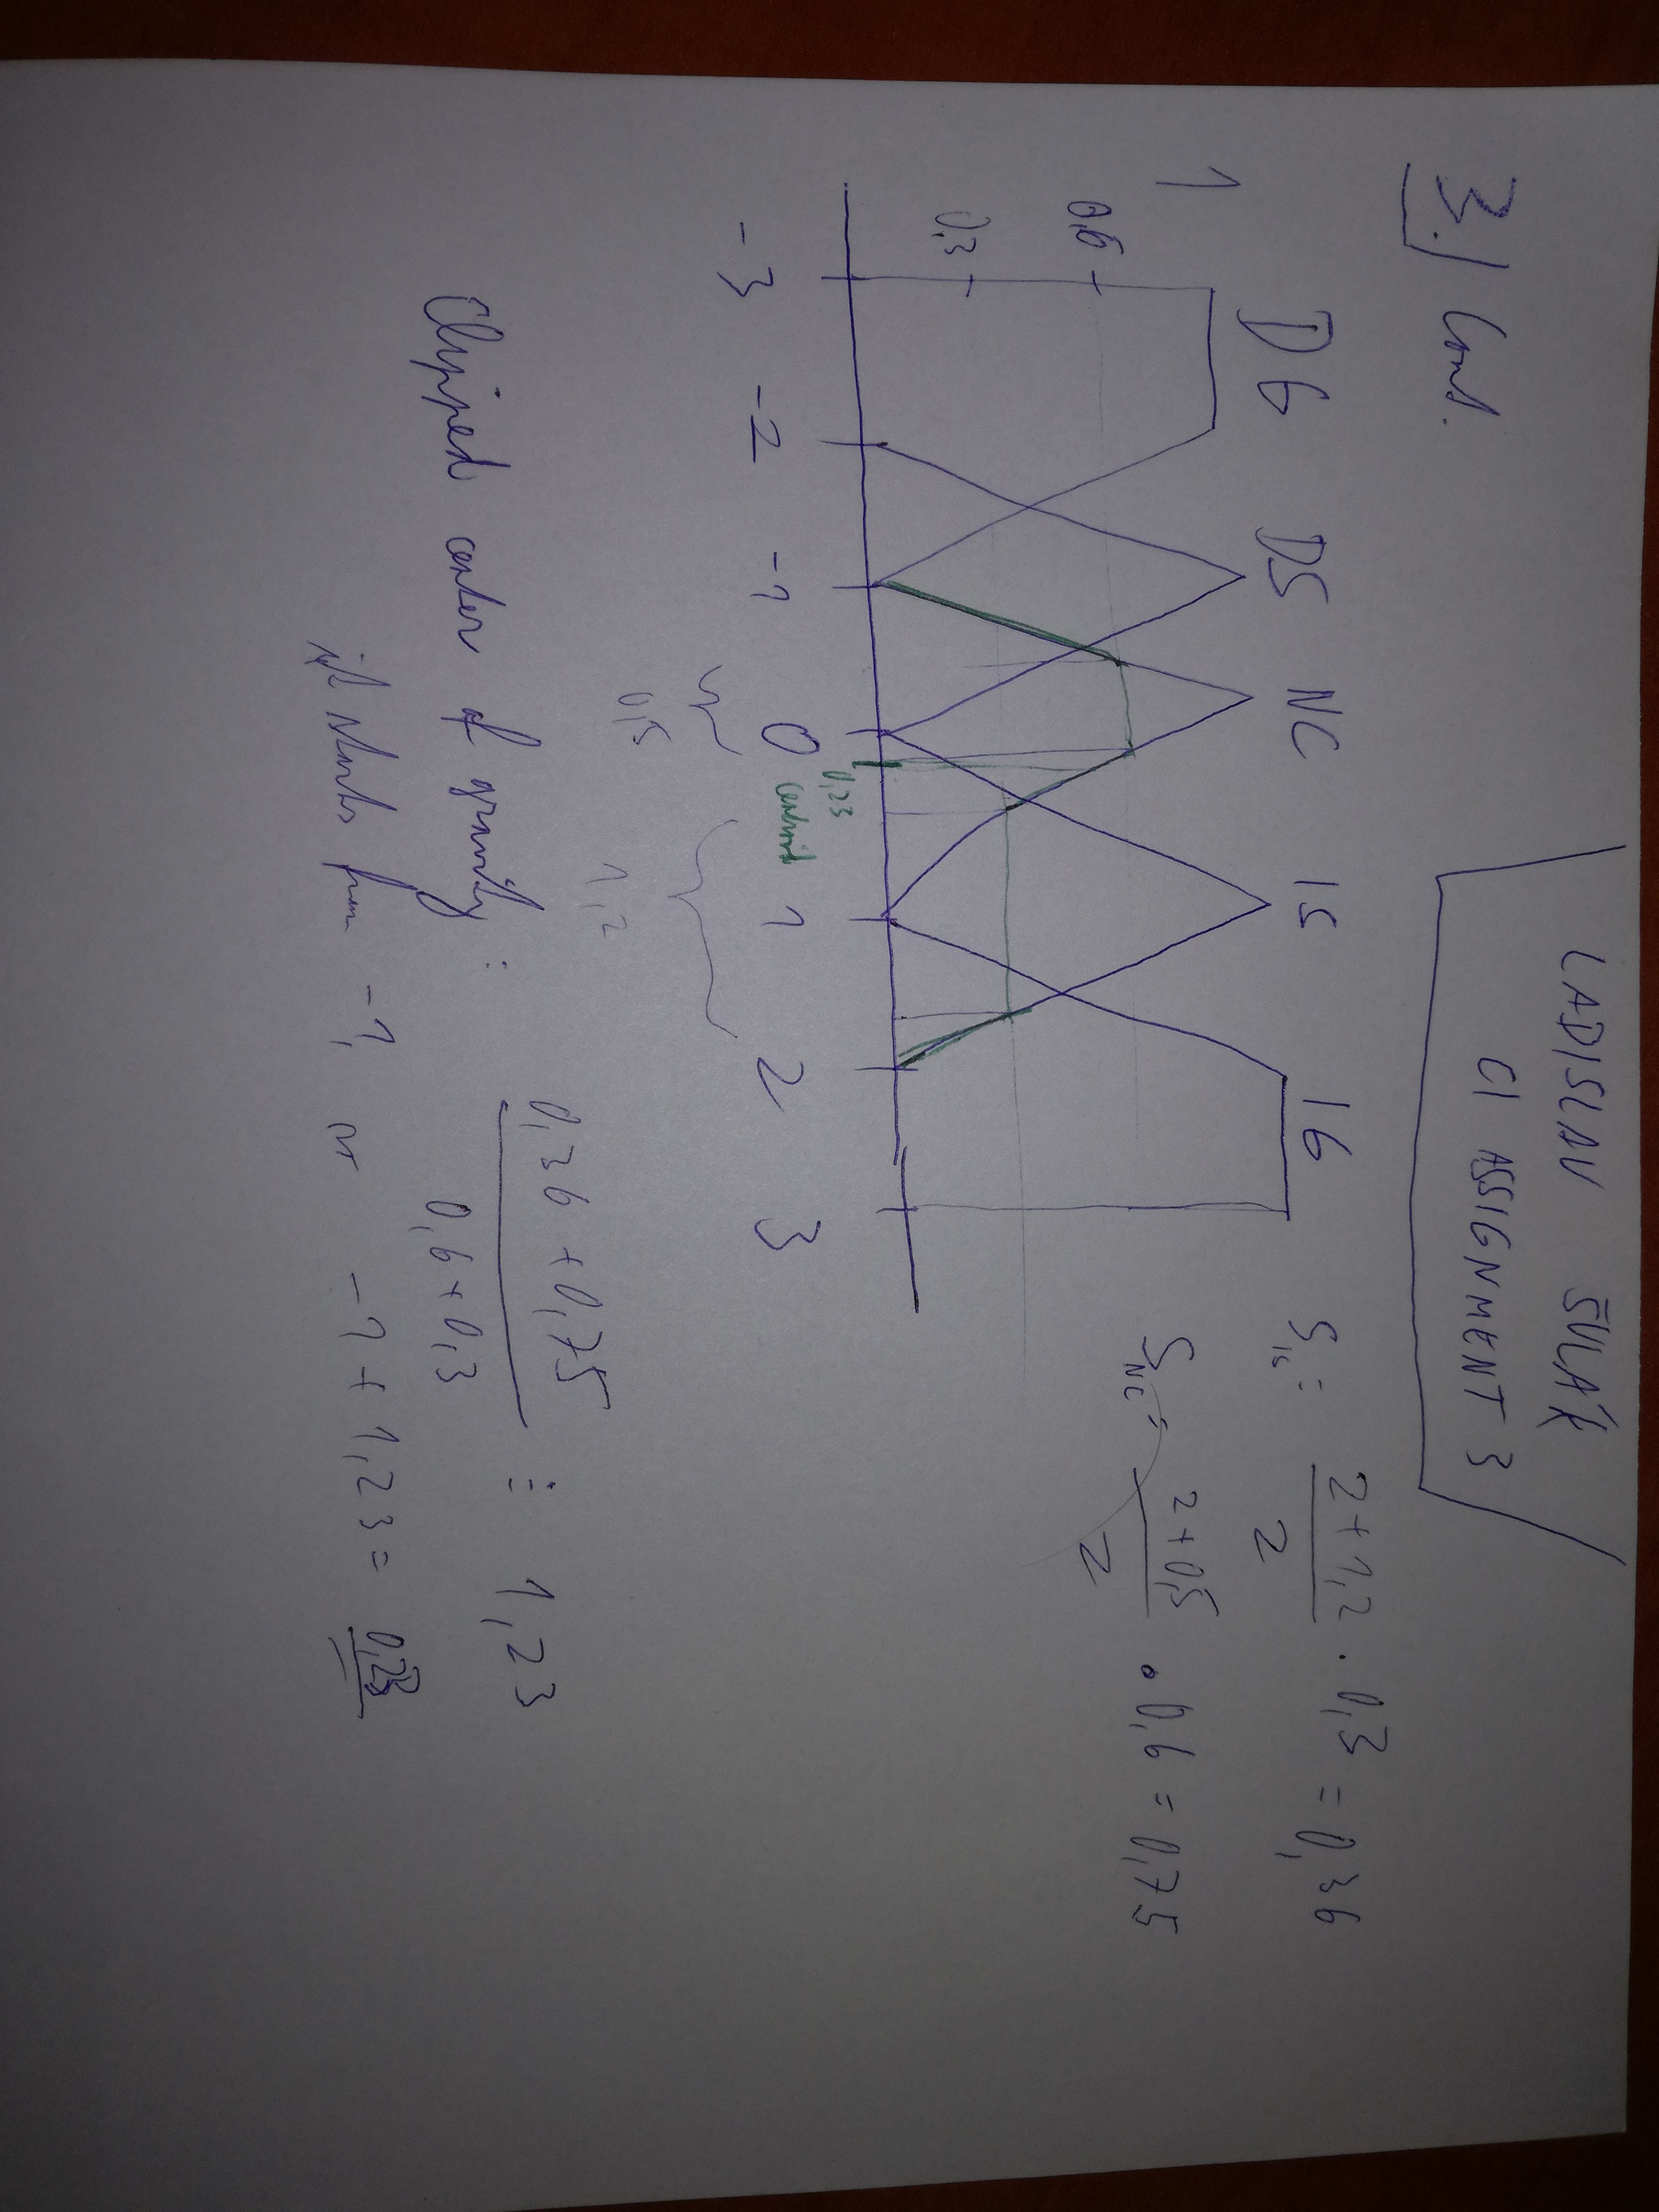 LADISLAV ŠULÁK
CI ASSIGNMENT 3
3./ Cont.
DG DS NC IS IG
1
0,6
0,3
-3 -2 -1 0 1 2 3
0,23
centroid
0,5 1,2
S_IS = (2+1,2)/2 · 0,3 = 0,36
S_NC = (2+0,5)/2 · 0,6 = 0,75
Clipped center of gravity:
0,36 + 0,75
0,6 + 0,3
= 1,23
it starts from -1, or -1 + 1,23 = 0,23